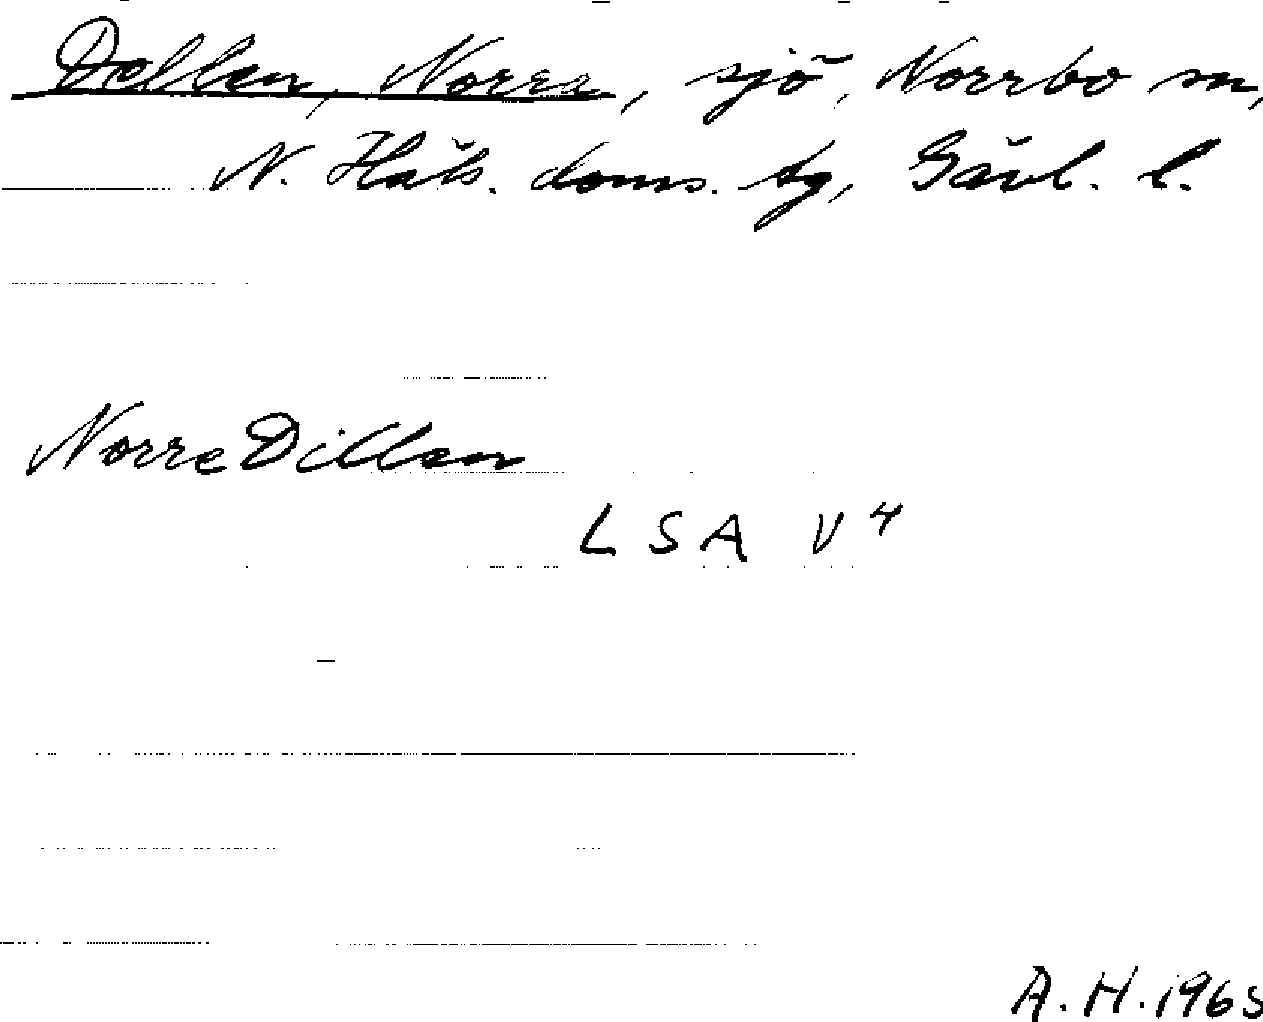 Dellen, Norra, sjö, Norrbo sn,
N. Häls. doms. tg, Gävl. l.
Norre Dillen
LSA V 4
A. H. 1965